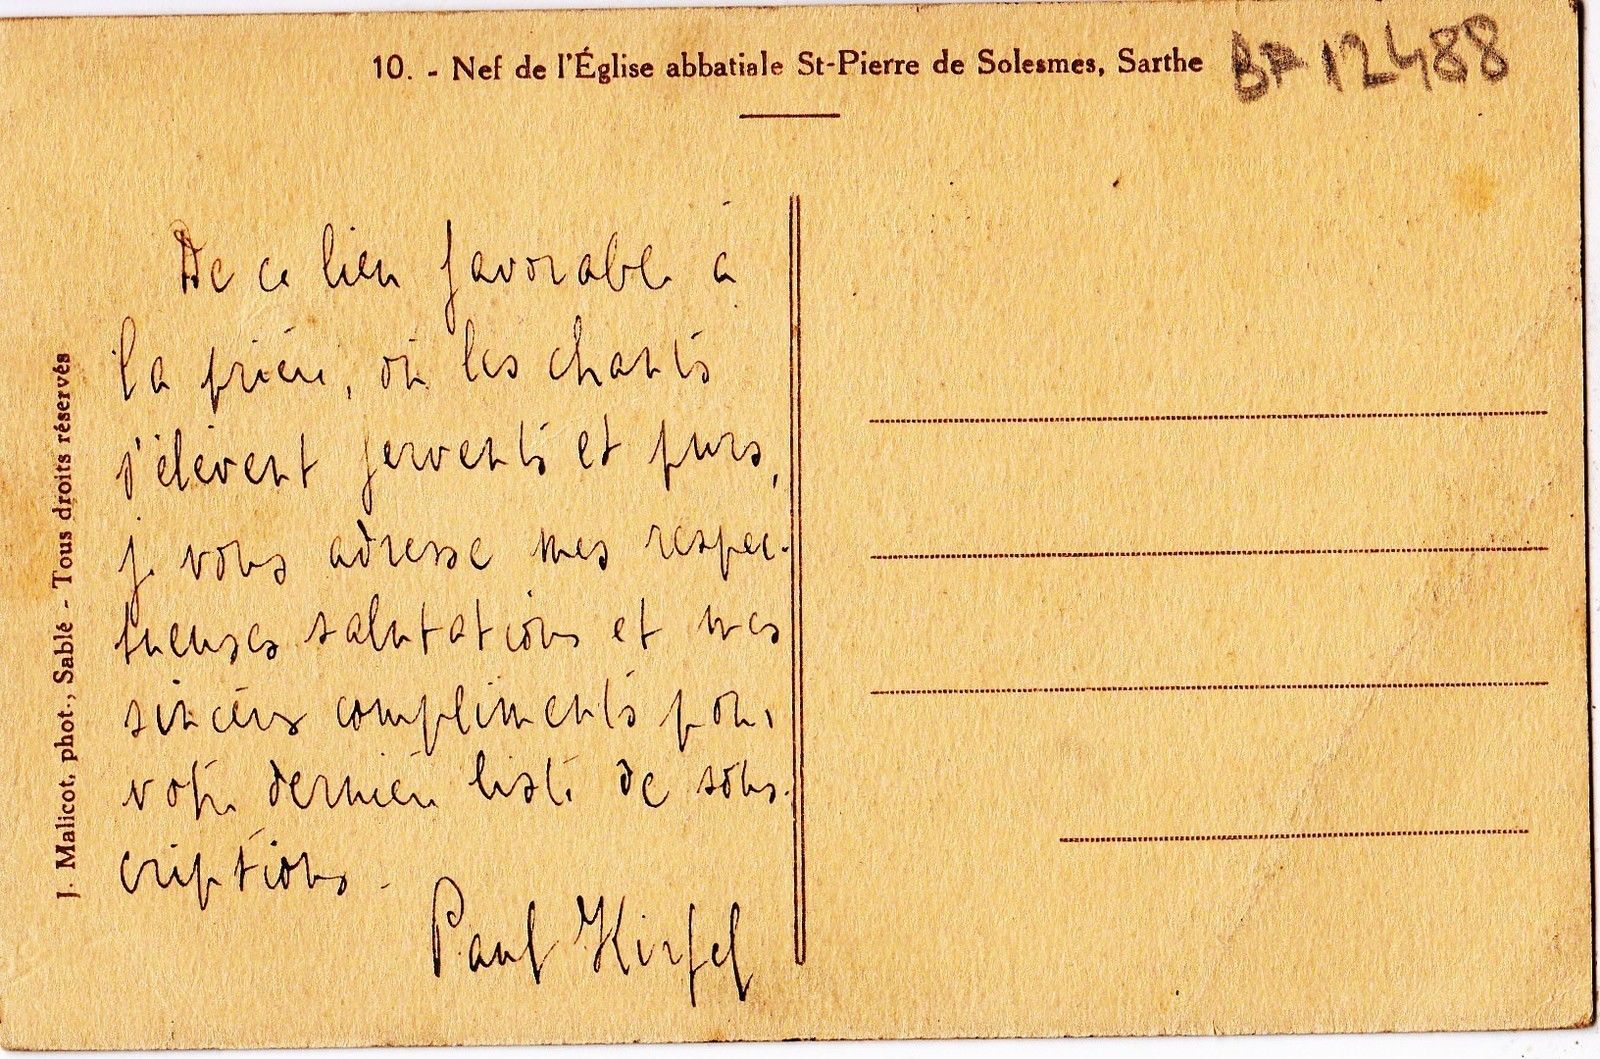 10. - Nef de l'Église abbatiale St-Pierre de Solesmes, Sarthe
BF 12488
J. Malicot, phot., Sablé - Tous droits réservés
De ce lieu favorable à
la prière, où les chants
s'élèvent fervents et purs,
je vous adresse mes respec-
tueuses salutations et mes
sincères compliments pour
votre dernière liste de sous-
criptions.
Paul Kirfel